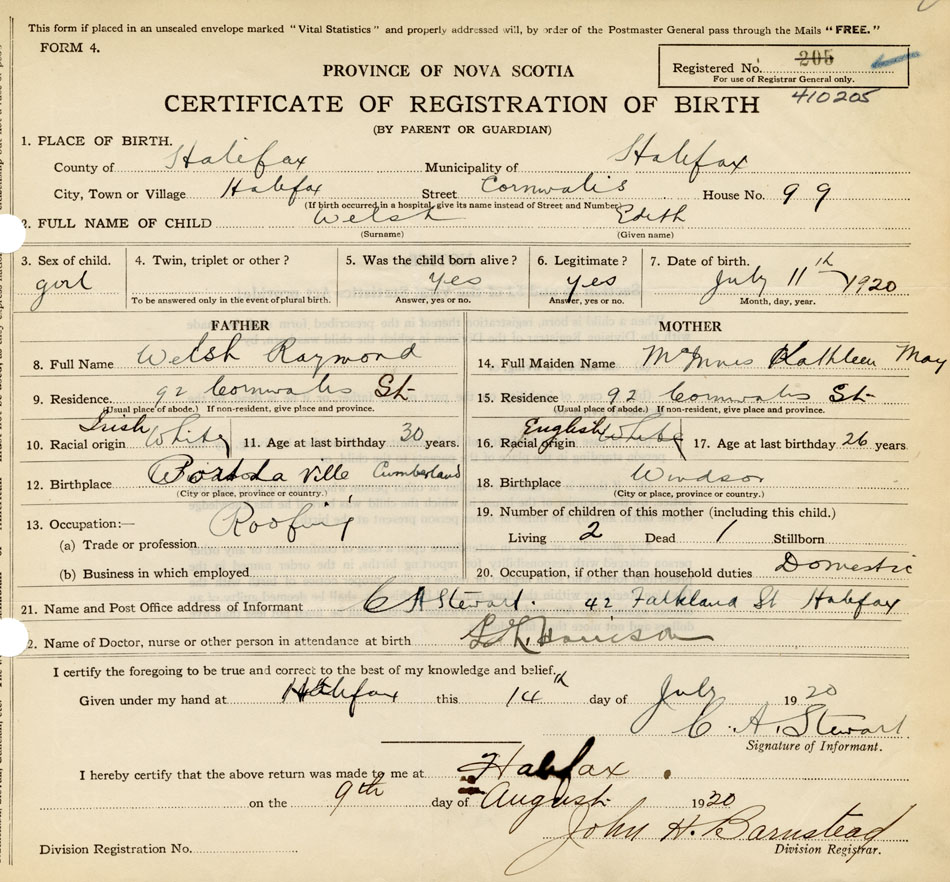 This form if placed in an unsealed envelope marked "Vital Statistics" and properly addressed will, by order of the Postmaster General pass through the Mails "FREE."
FORM 4.
Registered No. 205
For use of Registrar General only.
410205
PROVINCE OF NOVA SCOTIA
CERTIFICATE OF REGISTRATION OF BIRTH
(BY PARENT OR GUARDIAN)
1. PLACE OF BIRTH.
County of Halifax Municipality of Halifax
City, Town or Village Halifax Street Cornwalis House No. 99
(If birth occurred in a hospital, give its name instead of Street and Number)
2. FULL NAME OF CHILD Welsh Edith
(Surname) (Given name)
3. Sex of child. girl
4. Twin, triplet or other?
To be answered only in the event of plural birth.
5. Was the child born alive? Yes
Answer, yes or no.
6. Legitimate? Yes
Answer, yes or no.
7. Date of birth. July 11th 1920
Month, day, year.
FATHER
8. Full Name Welsh Raymond
9. Residence. 92 Cornwalis St-
(Usual place of abode.) If non-resident, give place and province.
10. Racial origin Irish White 11. Age at last birthday 30 years.
12. Birthplace ville Cumberland
(City or place, province or country.)
13. Occupation:— Roofing
(a) Trade or profession
(b) Business in which employed
MOTHER
14. Full Maiden Name McInnes Kathleen May
15. Residence 92 Cornwalis St-
(Usual place of abode.) If non-resident, give place and province.
16. Racial origin English White 17. Age at last birthday 26 years
18. Birthplace Windsor
(City or place, province or country.)
19. Number of children of this mother (including this child.)
Living 2 Dead 1 Stillborn
20. Occupation, if other than household duties Domestic
21. Name and Post Office address of Informant C A Stewart. 42 Falkland St Halifax
2. Name of Doctor, nurse or other person in attendance at birth
I certify the foregoing to be true and correct to the best of my knowledge and belief.
Given under my hand at Halifax this 14th day of July 1920
C. A. Stewart
Signature of Informant.
I hereby certify that the above return was made to me at Halifax
on the 9th day of August 1920
John H. Barnstead
Division Registrar.
Division Registration No.